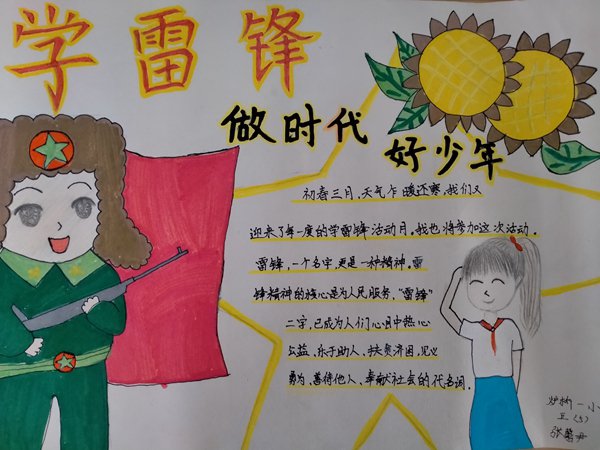 学雷锋
做时代
好少年
初春三月,天气乍暖还寒,我们又
迎来了每一度的学雷锋活动月,我也将参加这次活动。
雷锋,一个名字,更是一种精神。雷
锋精神的核心是为人民服务,“雷锋”
二字,已成为人们心目中热心
公益、乐于助人、扶贫济困、见义
勇为、善待他人、奉献社会的代名词。
一小
五(5)
张